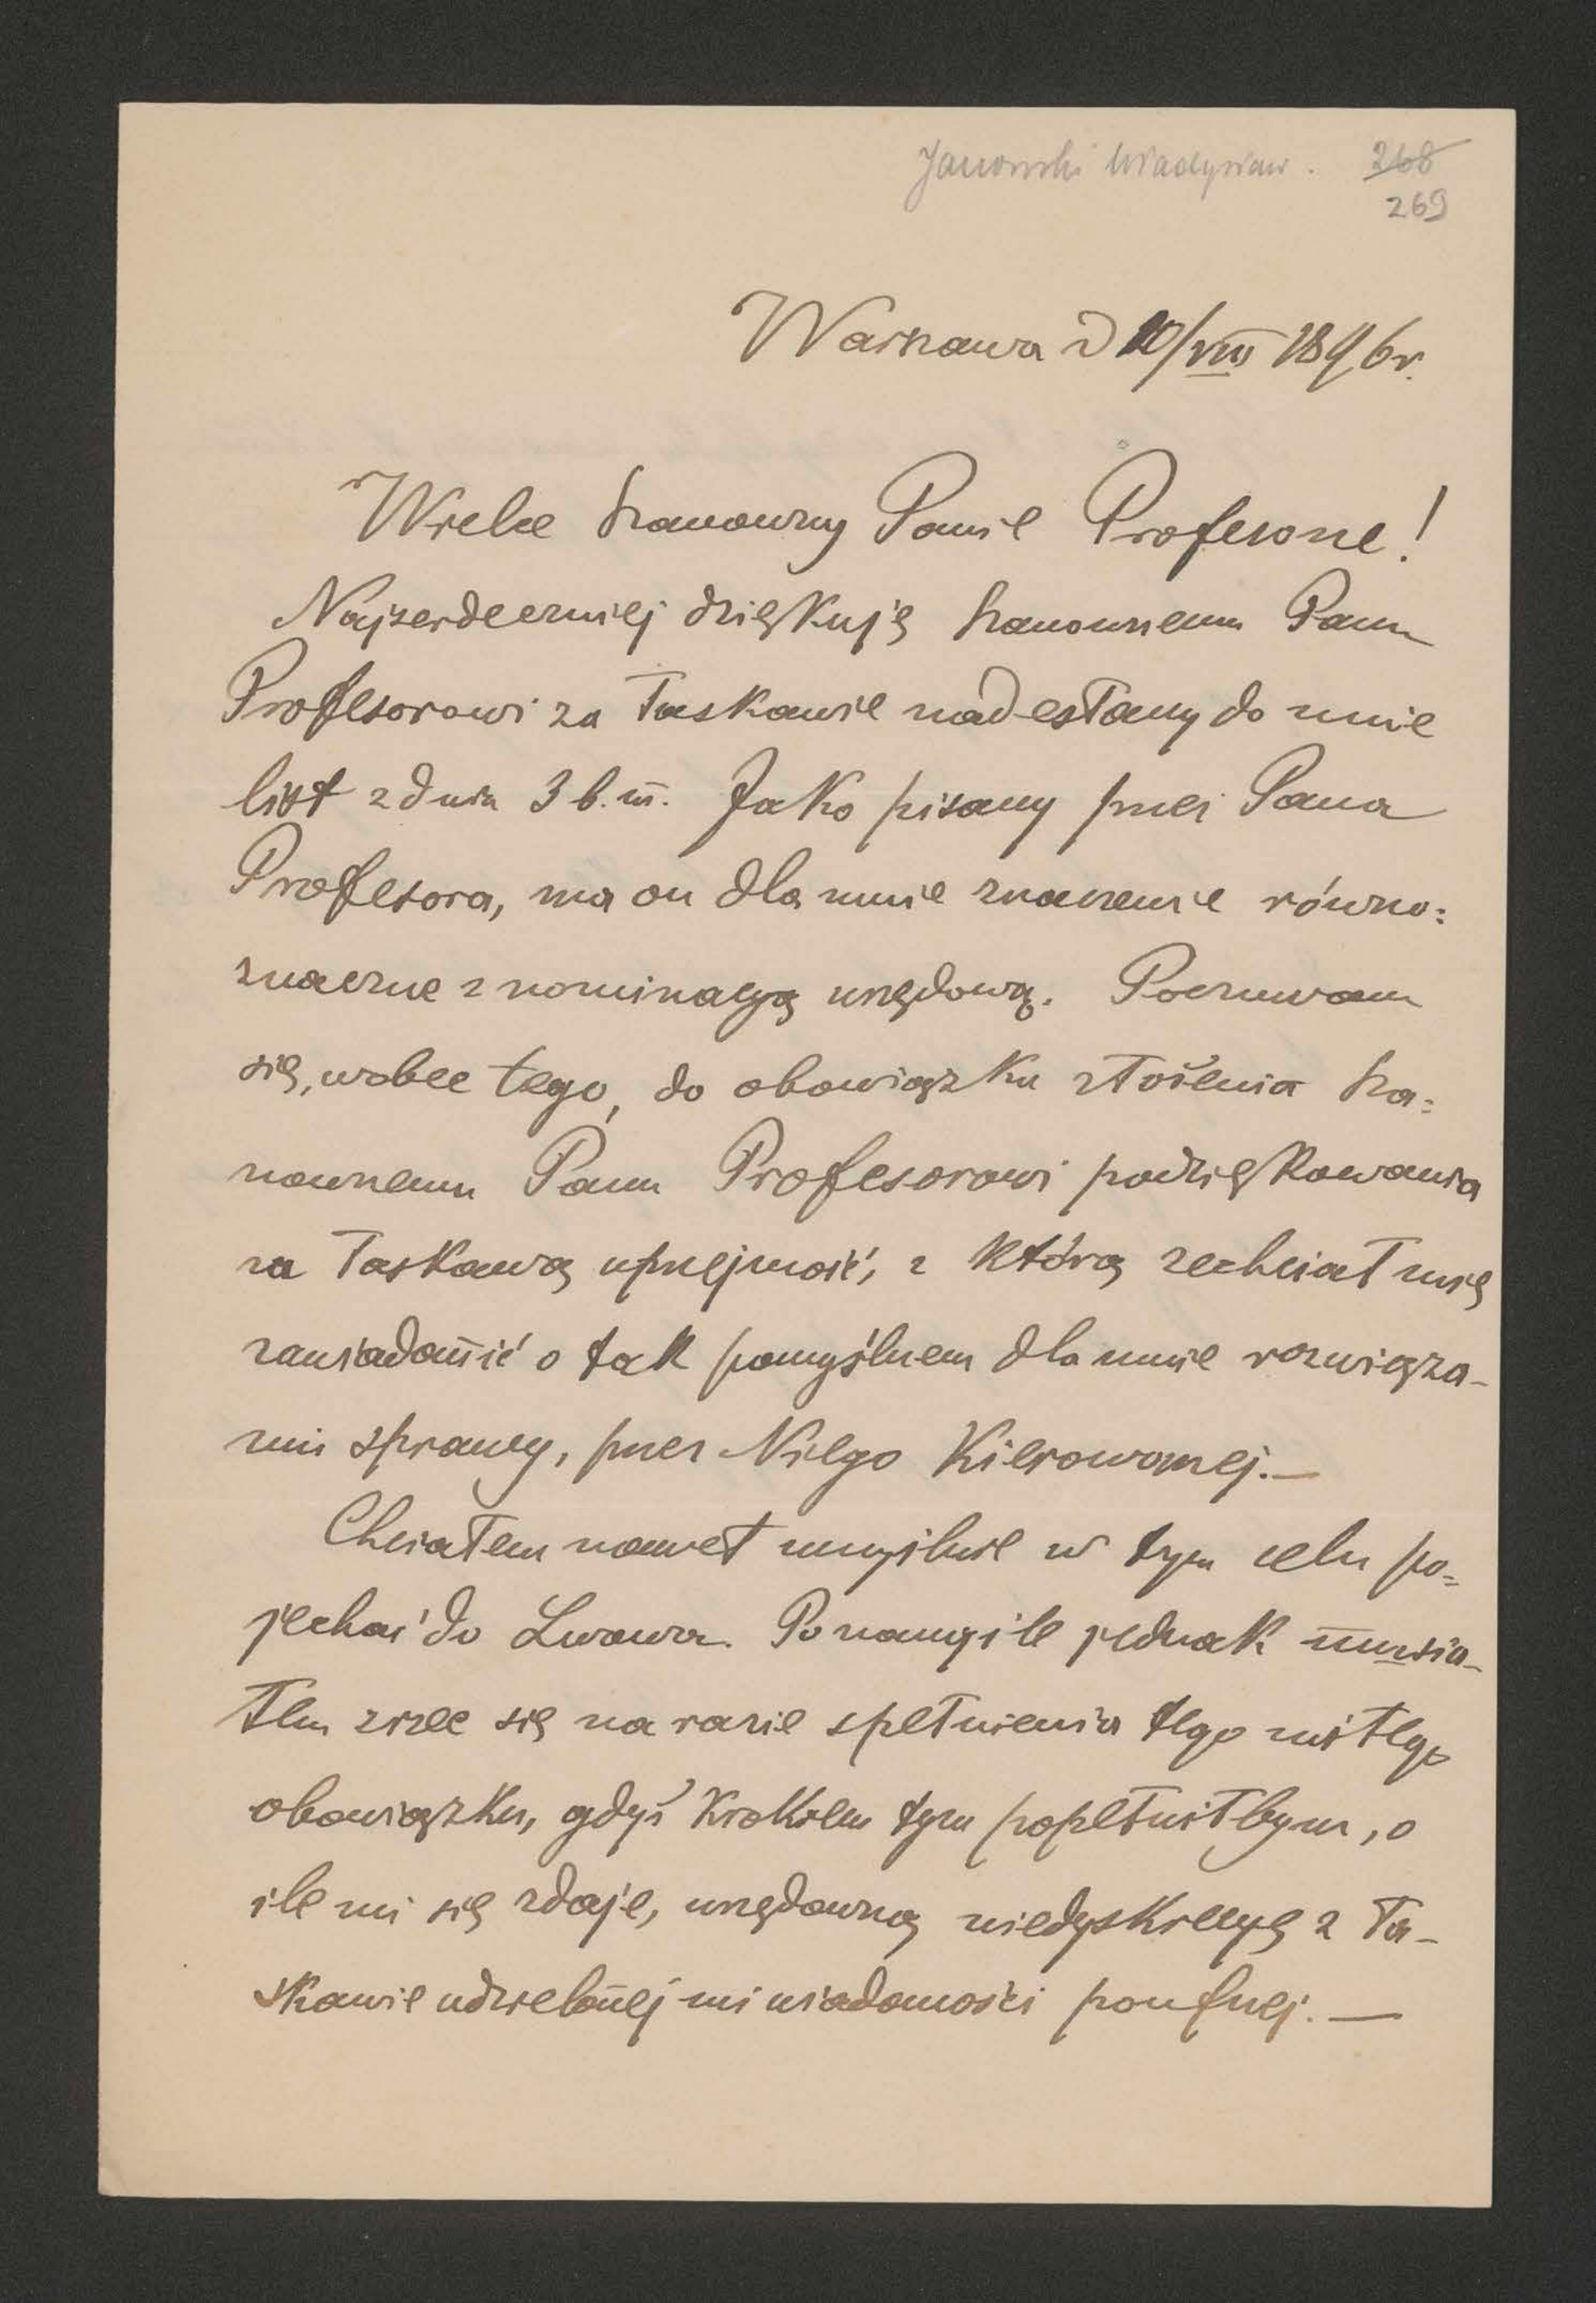 Janowski Władysław. 268
269
Warszawa d 10/VIII 1896 r.
Wielce Szanowny Panie Profesorze!
Najserdeczniej dziękuję Szanownemu Panu
Profesorowi za łaskawie nadesłany do mnie
list z dnia 3 b.m. Jako pisany przez Pana
Profesora, ma on dla mnie znaczenie równo=
znaczne z nominacyą urzędową. Poczuwam
się, wobec tego, do obowiązku złożenia Sza=
nownemu Panu Profesorowi podziękowania
za łaskawą uprzejmość, z którą zechciał mię
zawiadomić o tak pomyślnem dla mnie rozwiąza-
niu sprawy, przez Niego Kierowanej.—
Chciałem nawet umyślnie w tym celu po=
jechać do Lwowa. Po namyśle jednak musia-
łem zrzec się na razie spełnienia tego miłego
obowiązku, gdyż krokiem tym popełniłbym, o
ile mi się zdaje, urzędową niedyskrecyę z ła-
skawie udzielonej mi wiadomości poufnej.—